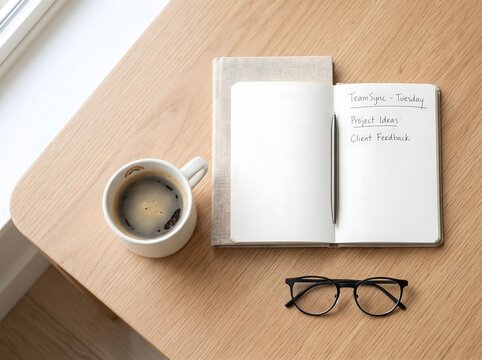 TeamSync - Tuesday
Project Ideas:
Client Feedback